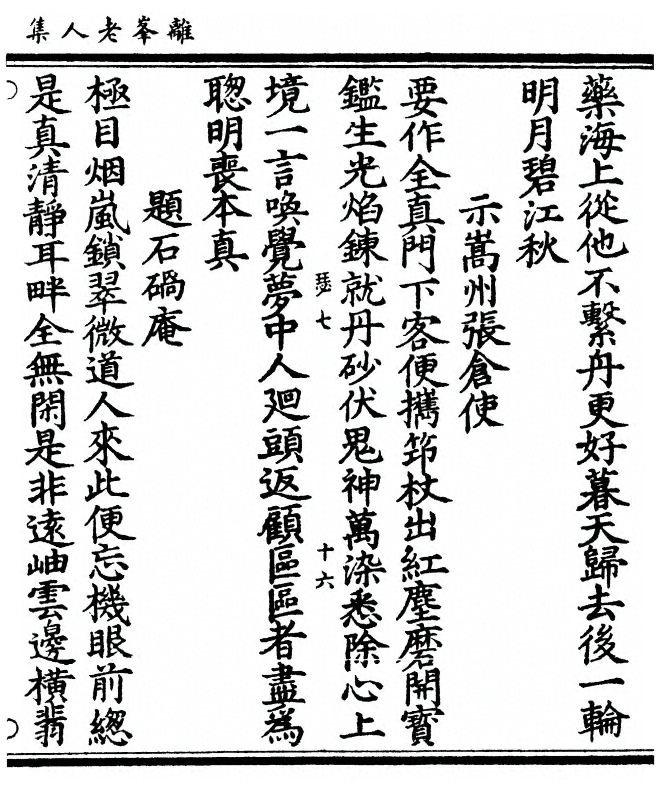 離峯老人集
藥海上從他不繫舟更好暮天歸去後一輪
明月碧江秋
示嵩州張倉使
要作全真門下客便攜笻杖出紅塵磨開寶
鑑生光焰鍊就丹砂伏鬼神萬染悉除心上
瑟七
十六
境一言喚覺夢中人廻頭返顧區區者盡爲
聰明喪本真
題石碢庵
極目烟嵐鎖翠微道人來此便忘機眼前緫
是真清靜耳畔全無閑是非遠岫雲邊橫翡